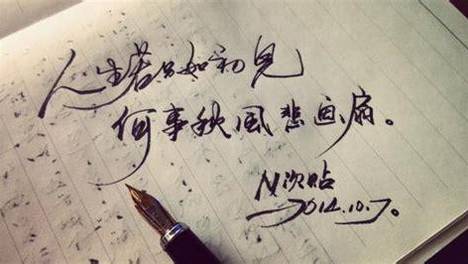 人生若只如初見
何事秋風悲画扇。
N次贴
2014.10.7。